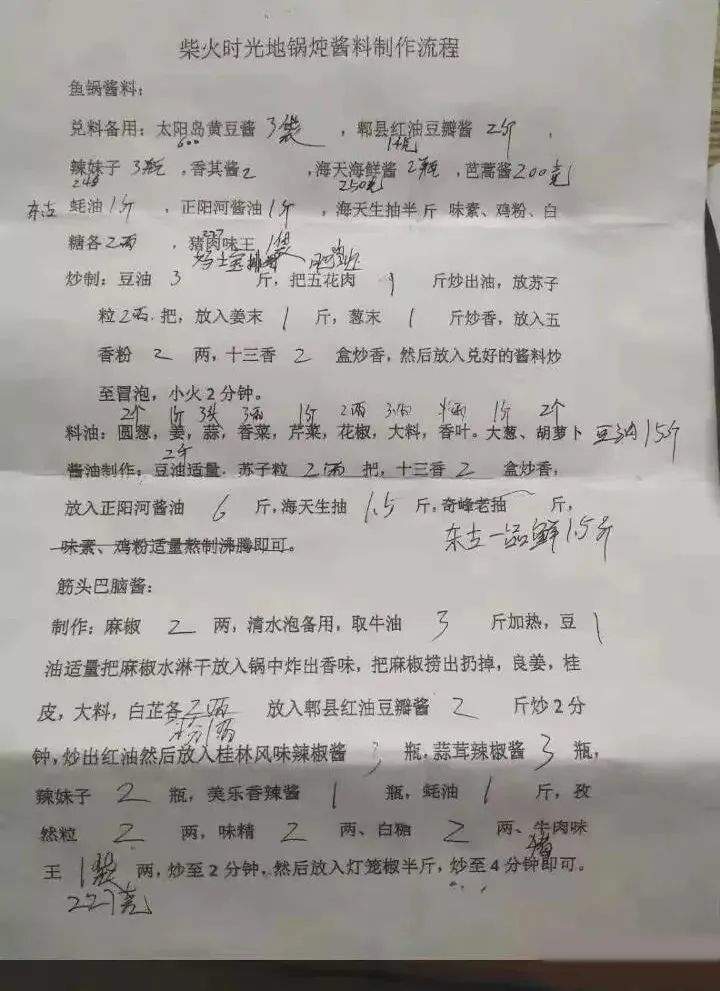 柴火时光地锅炖酱料制作流程
鱼锅酱料：
兑料备用：太阳岛黄豆酱 3袋 ，郫县红油豆瓣酱 2斤 ，
600
辣妹子 3瓶 ，香其酱2 ，海天海鲜酱 2瓶 ，芭蒿酱200克
250克
东古 蚝油 1斤 ，正阳河酱油 1斤 ，海天生抽半斤 味素、鸡粉、白
糖各 2两 ，猪肉味王 1袋
227
炒制：豆油 3 斤，把五花肉 1 斤炒出油，放苏子
粒2两 把，放入姜末 1 斤，葱末 1 斤炒香，放入五
香粉 2 两，十三香 2 盒炒香，然后放入兑好的酱料炒
至冒泡，小火2分钟。
2个 1斤 3头 3两 1斤 2两 3两 半两 1斤 2个
料油：圆葱，姜，蒜，香菜，芹菜，花椒，大料，香叶。大葱、胡萝卜 豆油15斤
2斤
酱油制作：豆油适量 苏子粒 2两 把，十三香 2 盒炒香，
放入正阳河酱油 6 斤，海天生抽 1.5 斤，奇峰老抽 斤，
味素、鸡粉适量熬制沸腾即可。 东古一品鲜1.5斤
筋头巴脑酱：
制作：麻椒 2 两，清水泡备用，取牛油 3 斤加热，豆 1
油适量把麻椒水淋干放入锅中炸出香味，把麻椒捞出扔掉，良姜，桂
皮，大料，白芷各 2两 放入郫县红油豆瓣酱 2 斤炒2分
1两
钟，炒出红油然后放入桂林风味辣椒酱 3 瓶，蒜茸辣椒酱 3 瓶，
辣妹子 2 瓶，美乐香辣酱 1 瓶，蚝油 1 斤，孜
然粒 2 两，味精 2 两、白糖 2 两、牛肉味
猪
王 1袋 两，炒至2分钟，然后放入灯笼椒半斤，炒至4分钟即可。
227克